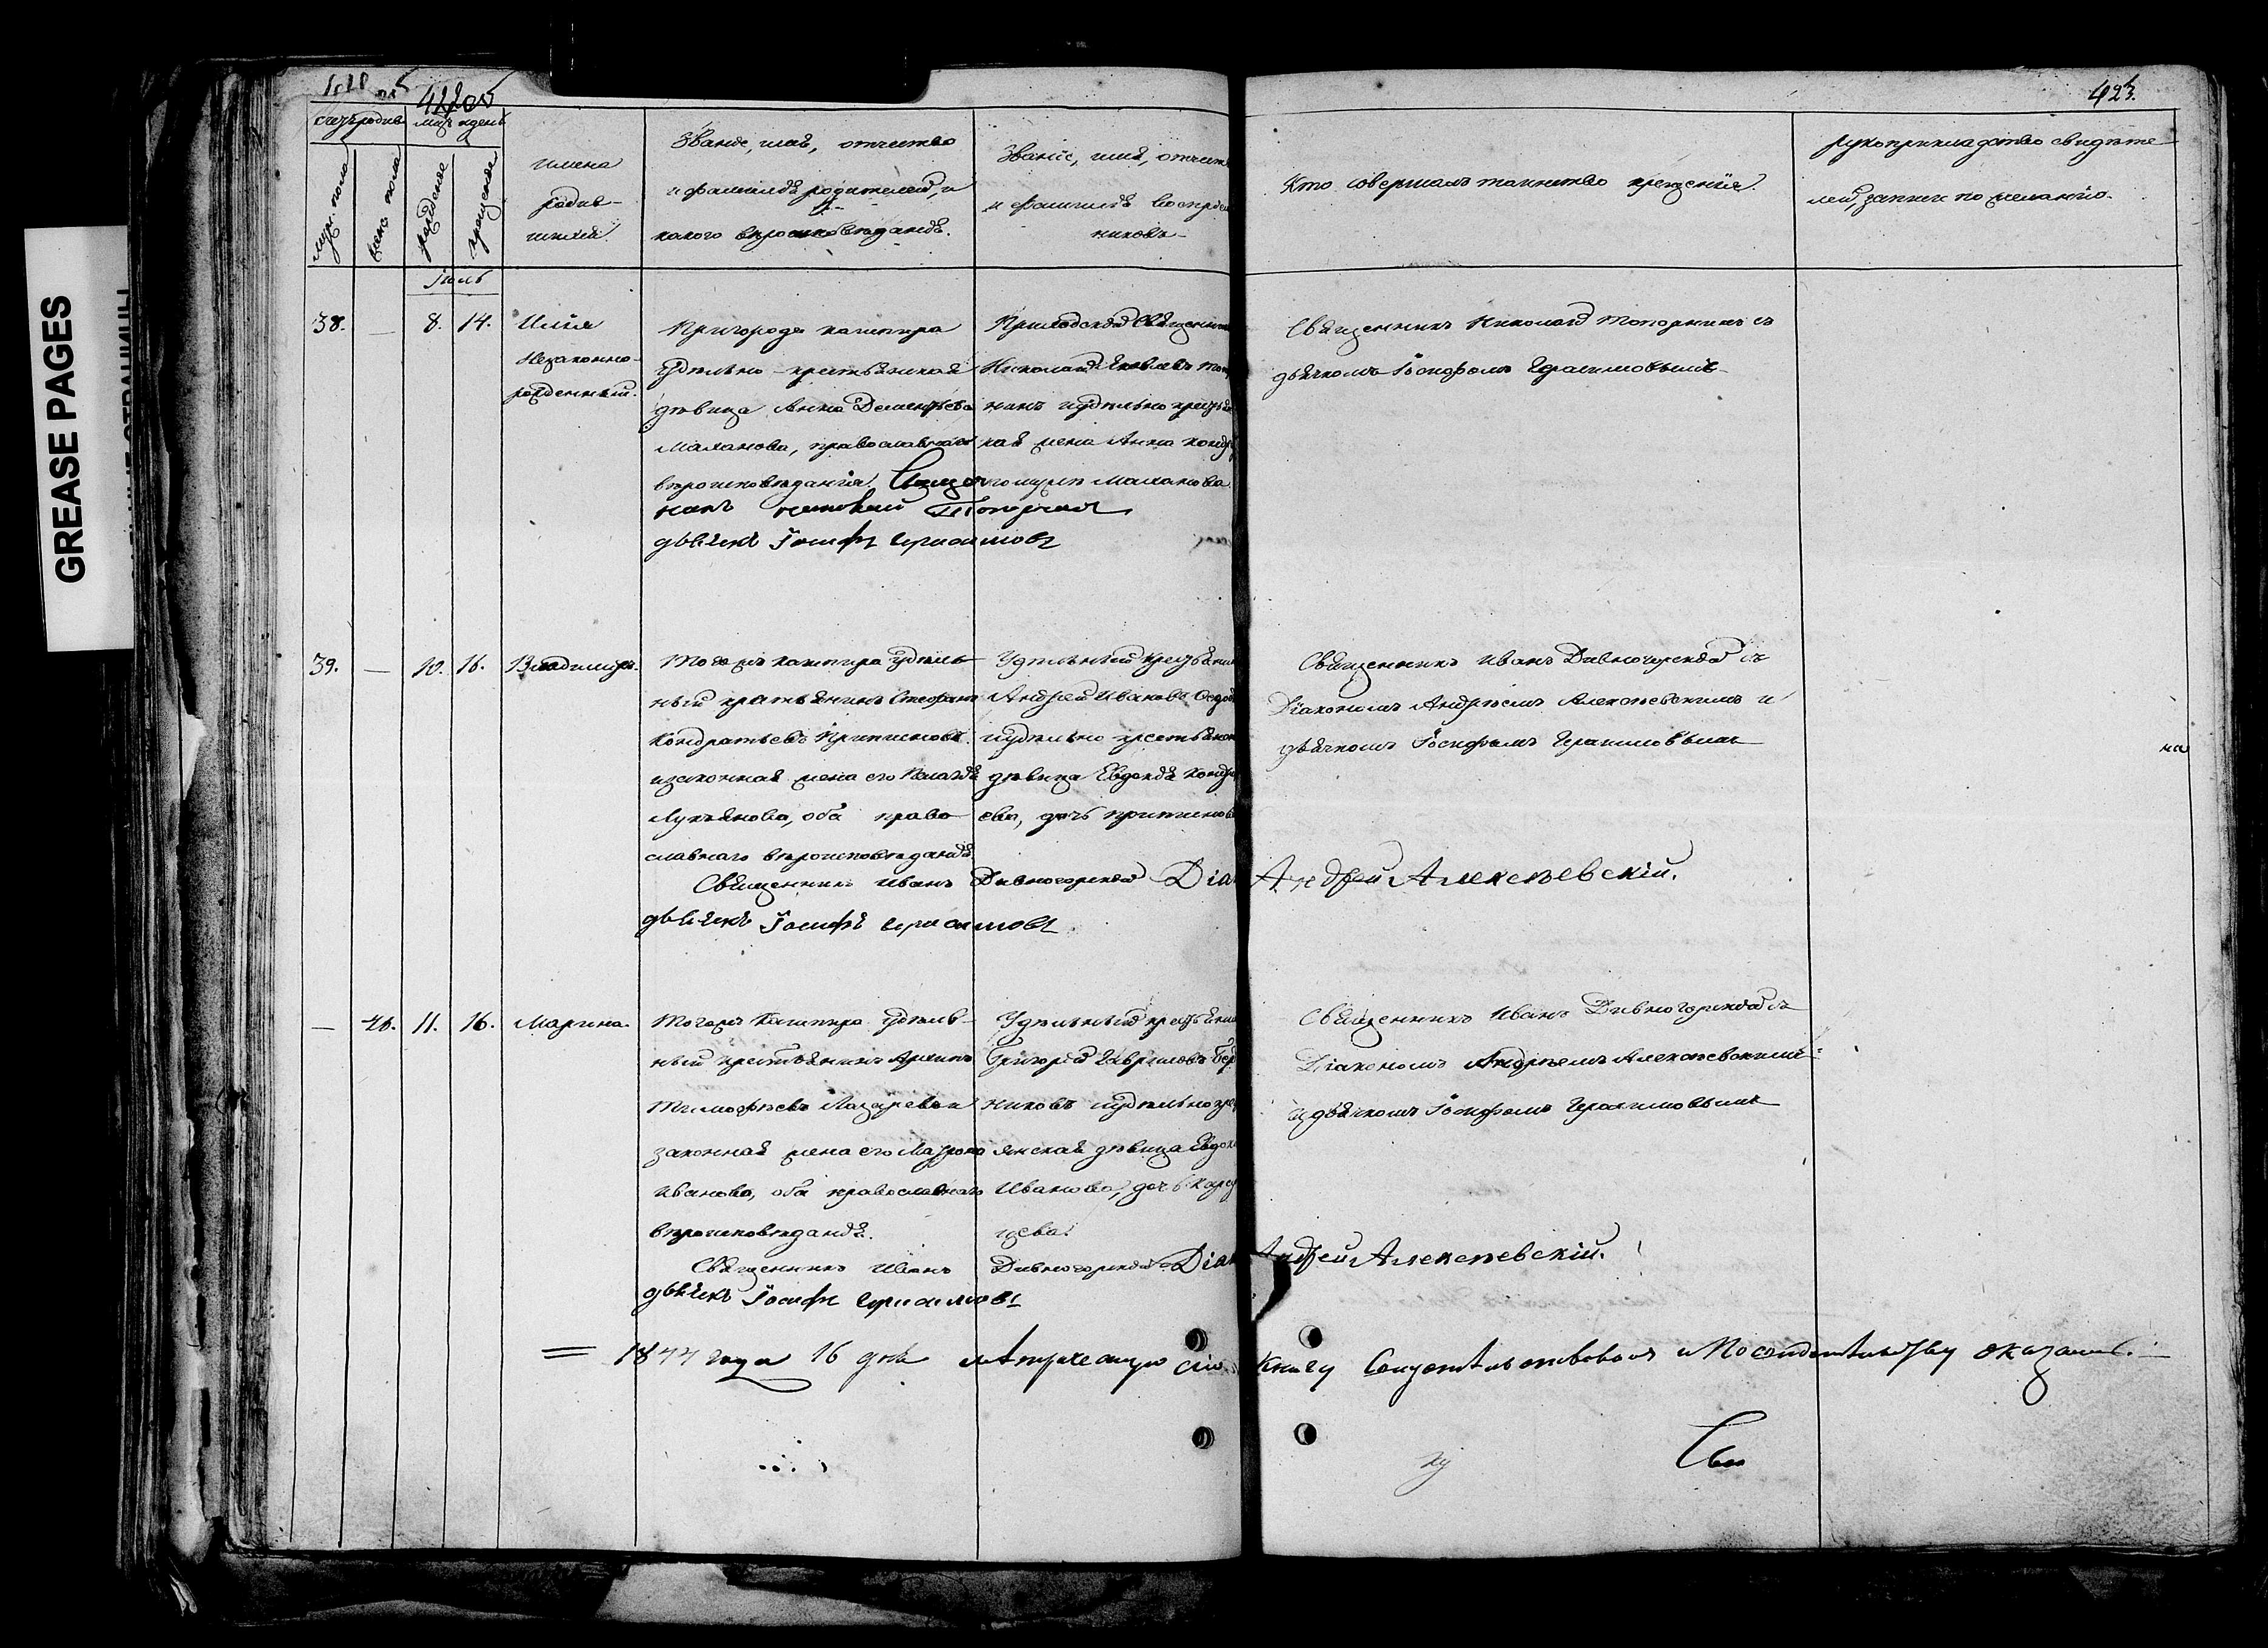 GREASE PAGES
423.
счетъ родив
мць и день
муж. пола
жен. пола
рожденія
крещенія
имена
родив-
шихся.
Званіе, имя, отчество
и фамилія родителей, и
какого вѣроисповѣданія.
Званіе, имя, отчест
и фамилія воспріем
никовъ
Кто совершалъ таинство крещенія.
рукоприкладство свидѣте
лей, записи по желанію.
Іюль
38. — 8. 14.
Илія
Незаконно-
рожденный.
Пригорода кашпира
удѣльно-крестьянская
дѣвица Анна Дементьева
Малахова, православнаго
вѣроисповѣданія. Священ
никъ Николай Топорнинъ
дьячекъ Іосифъ Герасимовъ
Приходскій Священник
Николай Яковлевъ Топ
нинъ и удѣльно крестья
кая жена Анна Конд
по мужѣ Малахова
Священникъ Николай Топорнинъ съ
дьячкомъ Іосифомъ Герасимовымъ
39. — 10. 16.
Владимиръ.
Того жъ кашпира удѣль
ный крестьянинъ Стефанъ
Кондратьевъ
и законная жена его Пелагія
Лукьянова, оба право
славнаго вѣроисповѣданія
Священникъ Иванъ Дивногорскій Діак Андрей Алексѣевскій.
дьячекъ Іосифъ Герасимовъ
Удѣльный крестьянин
Андрей Ивановъ
и удѣльно крестьянск
дѣвица Евдокія Кондр
ева, дочь
Священникъ Иванъ Дивногорскій съ
Діакономъ Андреемъ Алексѣевскимъ и
дьячкомъ Іосифомъ Герасимовымъ
— 11. 16.
Марина.
Тогожъ Кашпира удѣль-
ный крестьянинъ Архипъ
Тимофѣевъ Лазаревъ и
законная жена его Матрона
Иванова, оба православнаго
вѣроисповѣданія.
Священникъ Иванъ Дивногорскій Діак Андрей Алексѣевскій.
дьячекъ Іосифъ Герасимовъ
Удѣльный крестьянин
Григорій Гавриловъ
никовъ и удѣльно кре
янская дѣвица Евдок
Иванова, дочь
цева.
Священникъ Иванъ Дивногорскій съ
Діакономъ Андреемъ Алексѣевскимъ
и дьячкомъ Іосифомъ Герасимовымъ
1844 года 16 дня метрическую сію книгу Свидетельствовалъ и По оказалась.